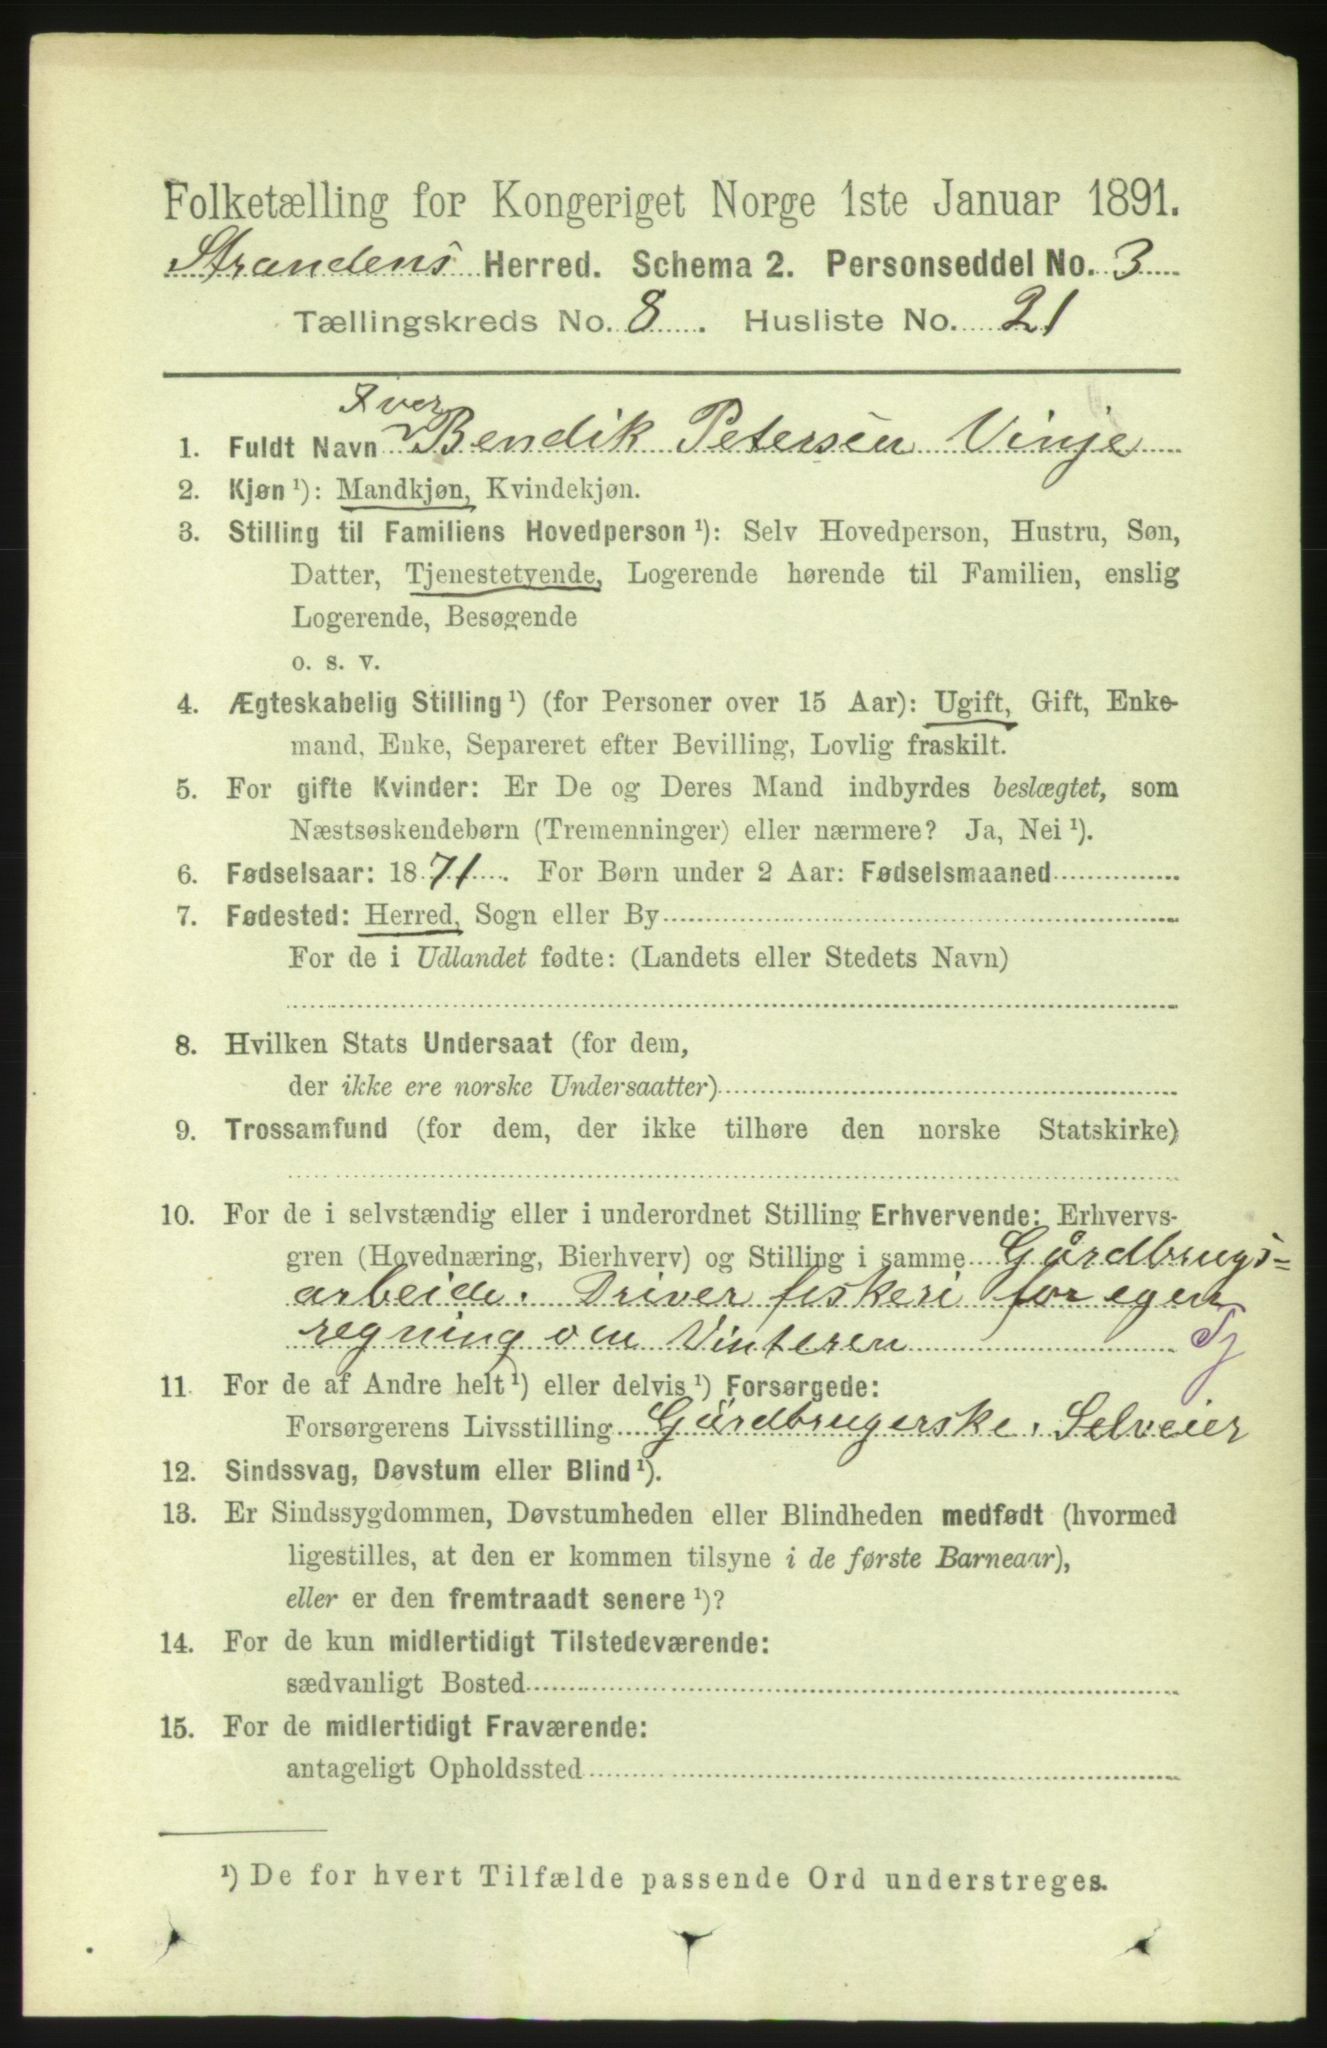 Folketælling for Kongeriget Norge 1ste Januar 1891.
Strandens Herred. Schema 2. Personseddel No. 3
Tællingskreds No. 8. Husliste No. 21
Iver
1. Fuldt Navn Bendik Petersen Vinje
2. Kjøn ¹): Mandkjøn, Kvindekjøn.
3. Stilling til Familiens Hovedperson ¹): Selv Hovedperson, Hustru, Søn,
Datter, Tjenestetyende, Logerende hørende til Familien, enslig
Logerende, Besøgende
o. s. v.
4. Ægteskabelig Stilling ¹) (for Personer over 15 Aar): Ugift, Gift, Enke-
mand, Enke, Separeret efter Bevilling, Lovlig fraskilt.
5. For gifte Kvinder: Er De og Deres Mand indbyrdes beslægtet, som
Næstsøskendebørn (Tremenninger) eller nærmere? Ja, Nei ¹).
6. Fødselsaar: 1871. For Børn under 2 Aar: Fødselsmaaned
7. Fødested: Herred, Sogn eller By
For de i Udlandet fødte: (Landets eller Stedets Navn)
8. Hvilken Stats Undersaat (for dem,
der ikke ere norske Undersaatter)
9. Trossamfund (for dem, der ikke tilhøre den norske Statskirke)
10. For de i selvstændig eller i underordnet Stilling Erhvervende: Erhvervs-
gren (Hovednæring, Bierhverv) og Stilling i samme Gårdbrugs=
arbeide. Driver fiskeri for egen
regning om Vinteren Tj
11. For de af Andre helt ¹) eller delvis ¹) Forsørgede:
Forsørgerens Livsstilling Gårdbrugerske, Selveier
12. Sindssvag, Døvstum eller Blind ¹).
13. Er Sindssygdommen, Døvstumheden eller Blindheden medfødt (hvormed
ligestilles, at den er kommen tilsyne i de første Barneaar),
eller er den fremtraadt senere ¹)?
14. For de kun midlertidigt Tilstedeværende:
sædvanligt Bosted
15. For de midlertidigt Fraværende:
antageligt Opholdssted
¹) De for hvert Tilfælde passende Ord understreges.